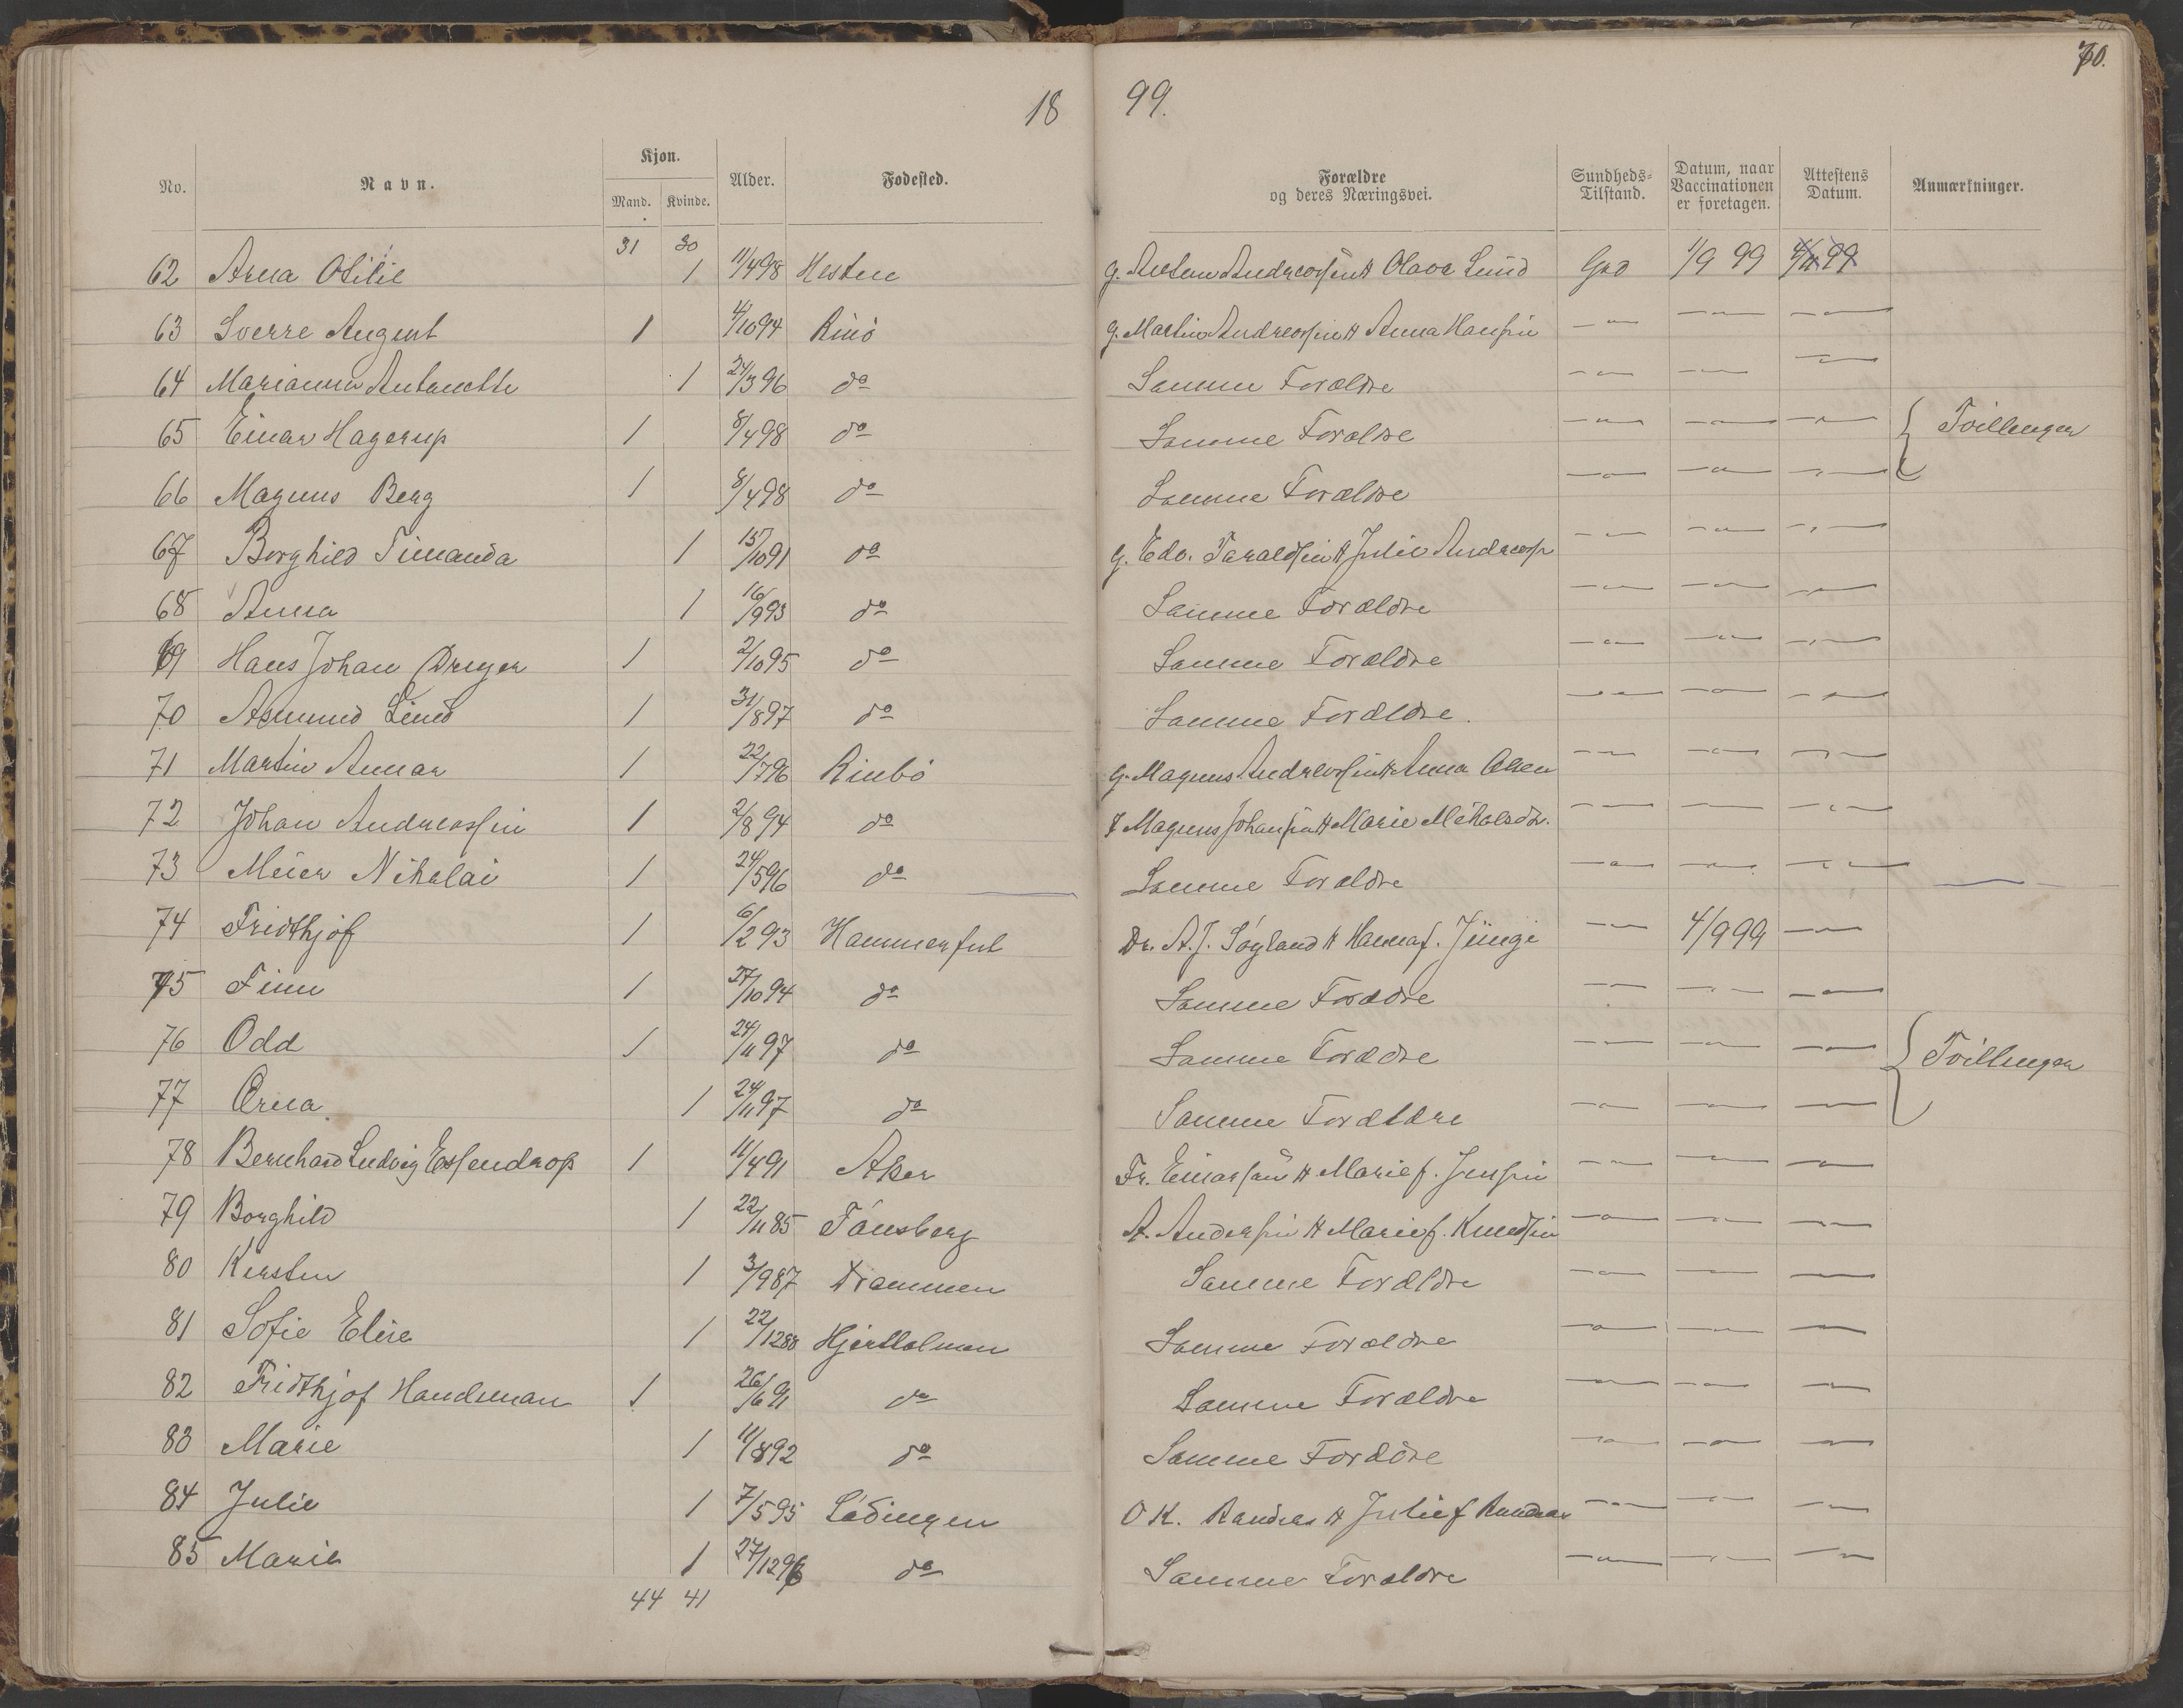 70.
18 99.
No. Navn. Kjøn. Mand. Kvinde. Alder. Fødested. Forældre og deres Næringsvei. Sundheds-Tilstand. Datum, naar Vaccinationen er foretagen. Attestens Datum. Anmærkninger.
31 30
62 Anna Otilie 1 11/4 98 Hesten g. Anton Andreassen & Olava Lund God 1/9 99 4/11 99
63 Sverre August 1 4/10 94 Rinø g. Martin Andreassen & Anna Hansen — " — — " — — " —
64 Marianna Antonette 1 24/3 96 do Samme Forældre — " — — " — — " —
65 Einar Hagerup 1 8/4 98 do Samme Forældre — " — — " — — " — Tvillinger
66 Magnus Berg 1 8/4 98 do Samme Forældre — " — — " — — " —
67 Borghild Timanda 1 15/10 91 do g. Edv. Taraldsen & Julie Andreass — " — — " — — " —
68 Anna 1 16/9 93 do Samme Forældre — " — — " — — " —
69 Hans Johan Dreyer 1 2/10 95 do Samme Forældre — " — — " — — " —
70 Asmund Lind 1 31/8 97 do Samme Forældre. — " — — " — — " —
71 Martin Annar 1 22/7 96 Rinbø g. Magnus Andreassen & Anna Olsen — " — — " — — " —
72 Johan Andreassen 1 2/8 94 do Magnus Johansen & Marie Mikalsdr. — " — — " — — " —
73 Meier Nikolai 1 24/5 96 do Samme Forældre — " — — " — — " —
74 Fridthjof 1 6/2 93 Hammerfest Dr. A. J. Søyland & Hanna f. Jünge — " — 4/9 99 — " —
75 Finn 1 27/10 94 do Samme Forældre — " — — " — — " —
76 Odd 1 24/11 97 do Samme Forældre — " — — " — — " — Tvillinger
77 Erna 1 24/11 97 do Samme Forældre — " — — " — — " —
78 Bernhard Ludvig Essendrop 1 11/4 91 Asker Fr. Einarsen & Marie f. Jensen — " — — " — — " —
79 Borghild 1 22/11 85 Tønsberg A. Andersen & Marie f. Knudsen — " — — " — — " —
80 Kirsten 1 3/9 87 Drammen Samme Forældre — " — — " — — " —
81 Sofie Elise 1 22/12 88 Hjertholmen Samme Forældre — " — — " — — " —
82 Fridthjof Handeman 1 26/6 91 do Samme Forældre — " — — " — — " —
83 Marie 1 11/8 92 do Samme Forældre — " — — " — — " —
84 Julie 1 7/5 95 Lødingen O K. Randers & Julie f Randers — " — — " — — " —
85 Marie 1 27/12 96 do Samme Forældre — " — — " — — " —
44 41